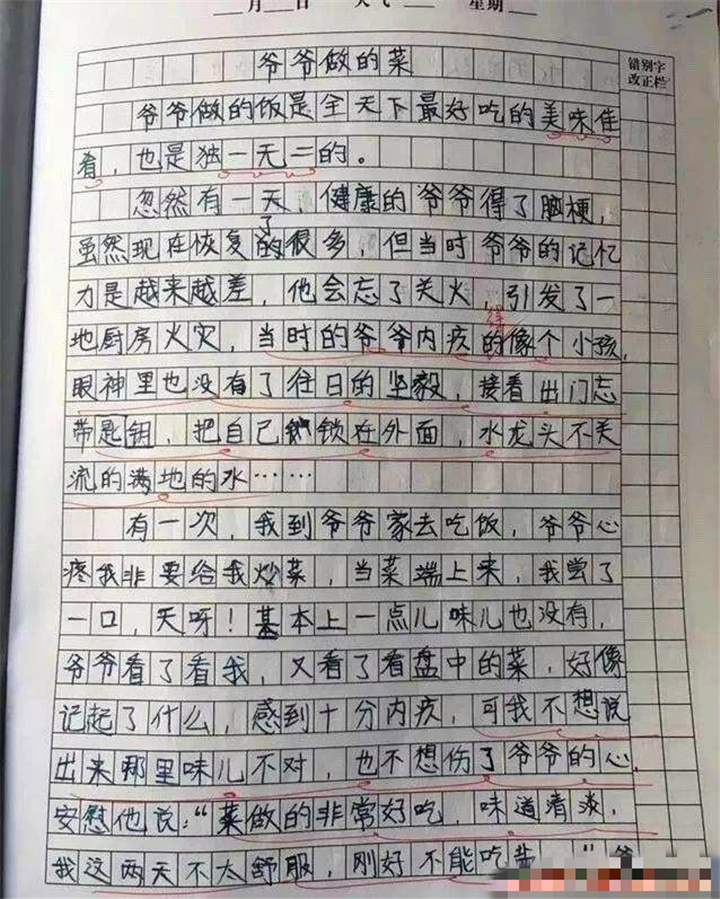 月 日 天气 星期
错别字
改正栏
爷爷做的菜
爷爷做的饭是全天下最好吃的美味佳
肴,也是独一无二的。
忽然有一天,健康的爷爷得了脑梗,
虽然现在恢复了的很多,但当时爷爷的记忆
力是越来越差,他会忘了关火,引发了一
地厨房火灾,当时的爷爷内疚的像个小孩,
眼神里也没有了往日的坚毅,接着出门忘
带匙钥,把自己锁在外面,水龙头不关
流的满地的水……
有一次,我到爷爷家去吃饭,爷爷心
疼我非要给我炒菜,当菜端上来,我尝了
一口,天呀!基本上一点儿味儿也没有,
爷爷看了看我,又看了看盘中的菜,好像
记起了什么,感到十分内疚,可我不想说
出来那里味儿不对,也不想伤了爷爷的心,
安慰他说:“菜做的非常好吃,味道清淡,
我这两天不太舒服,刚好不能吃盐。”爷